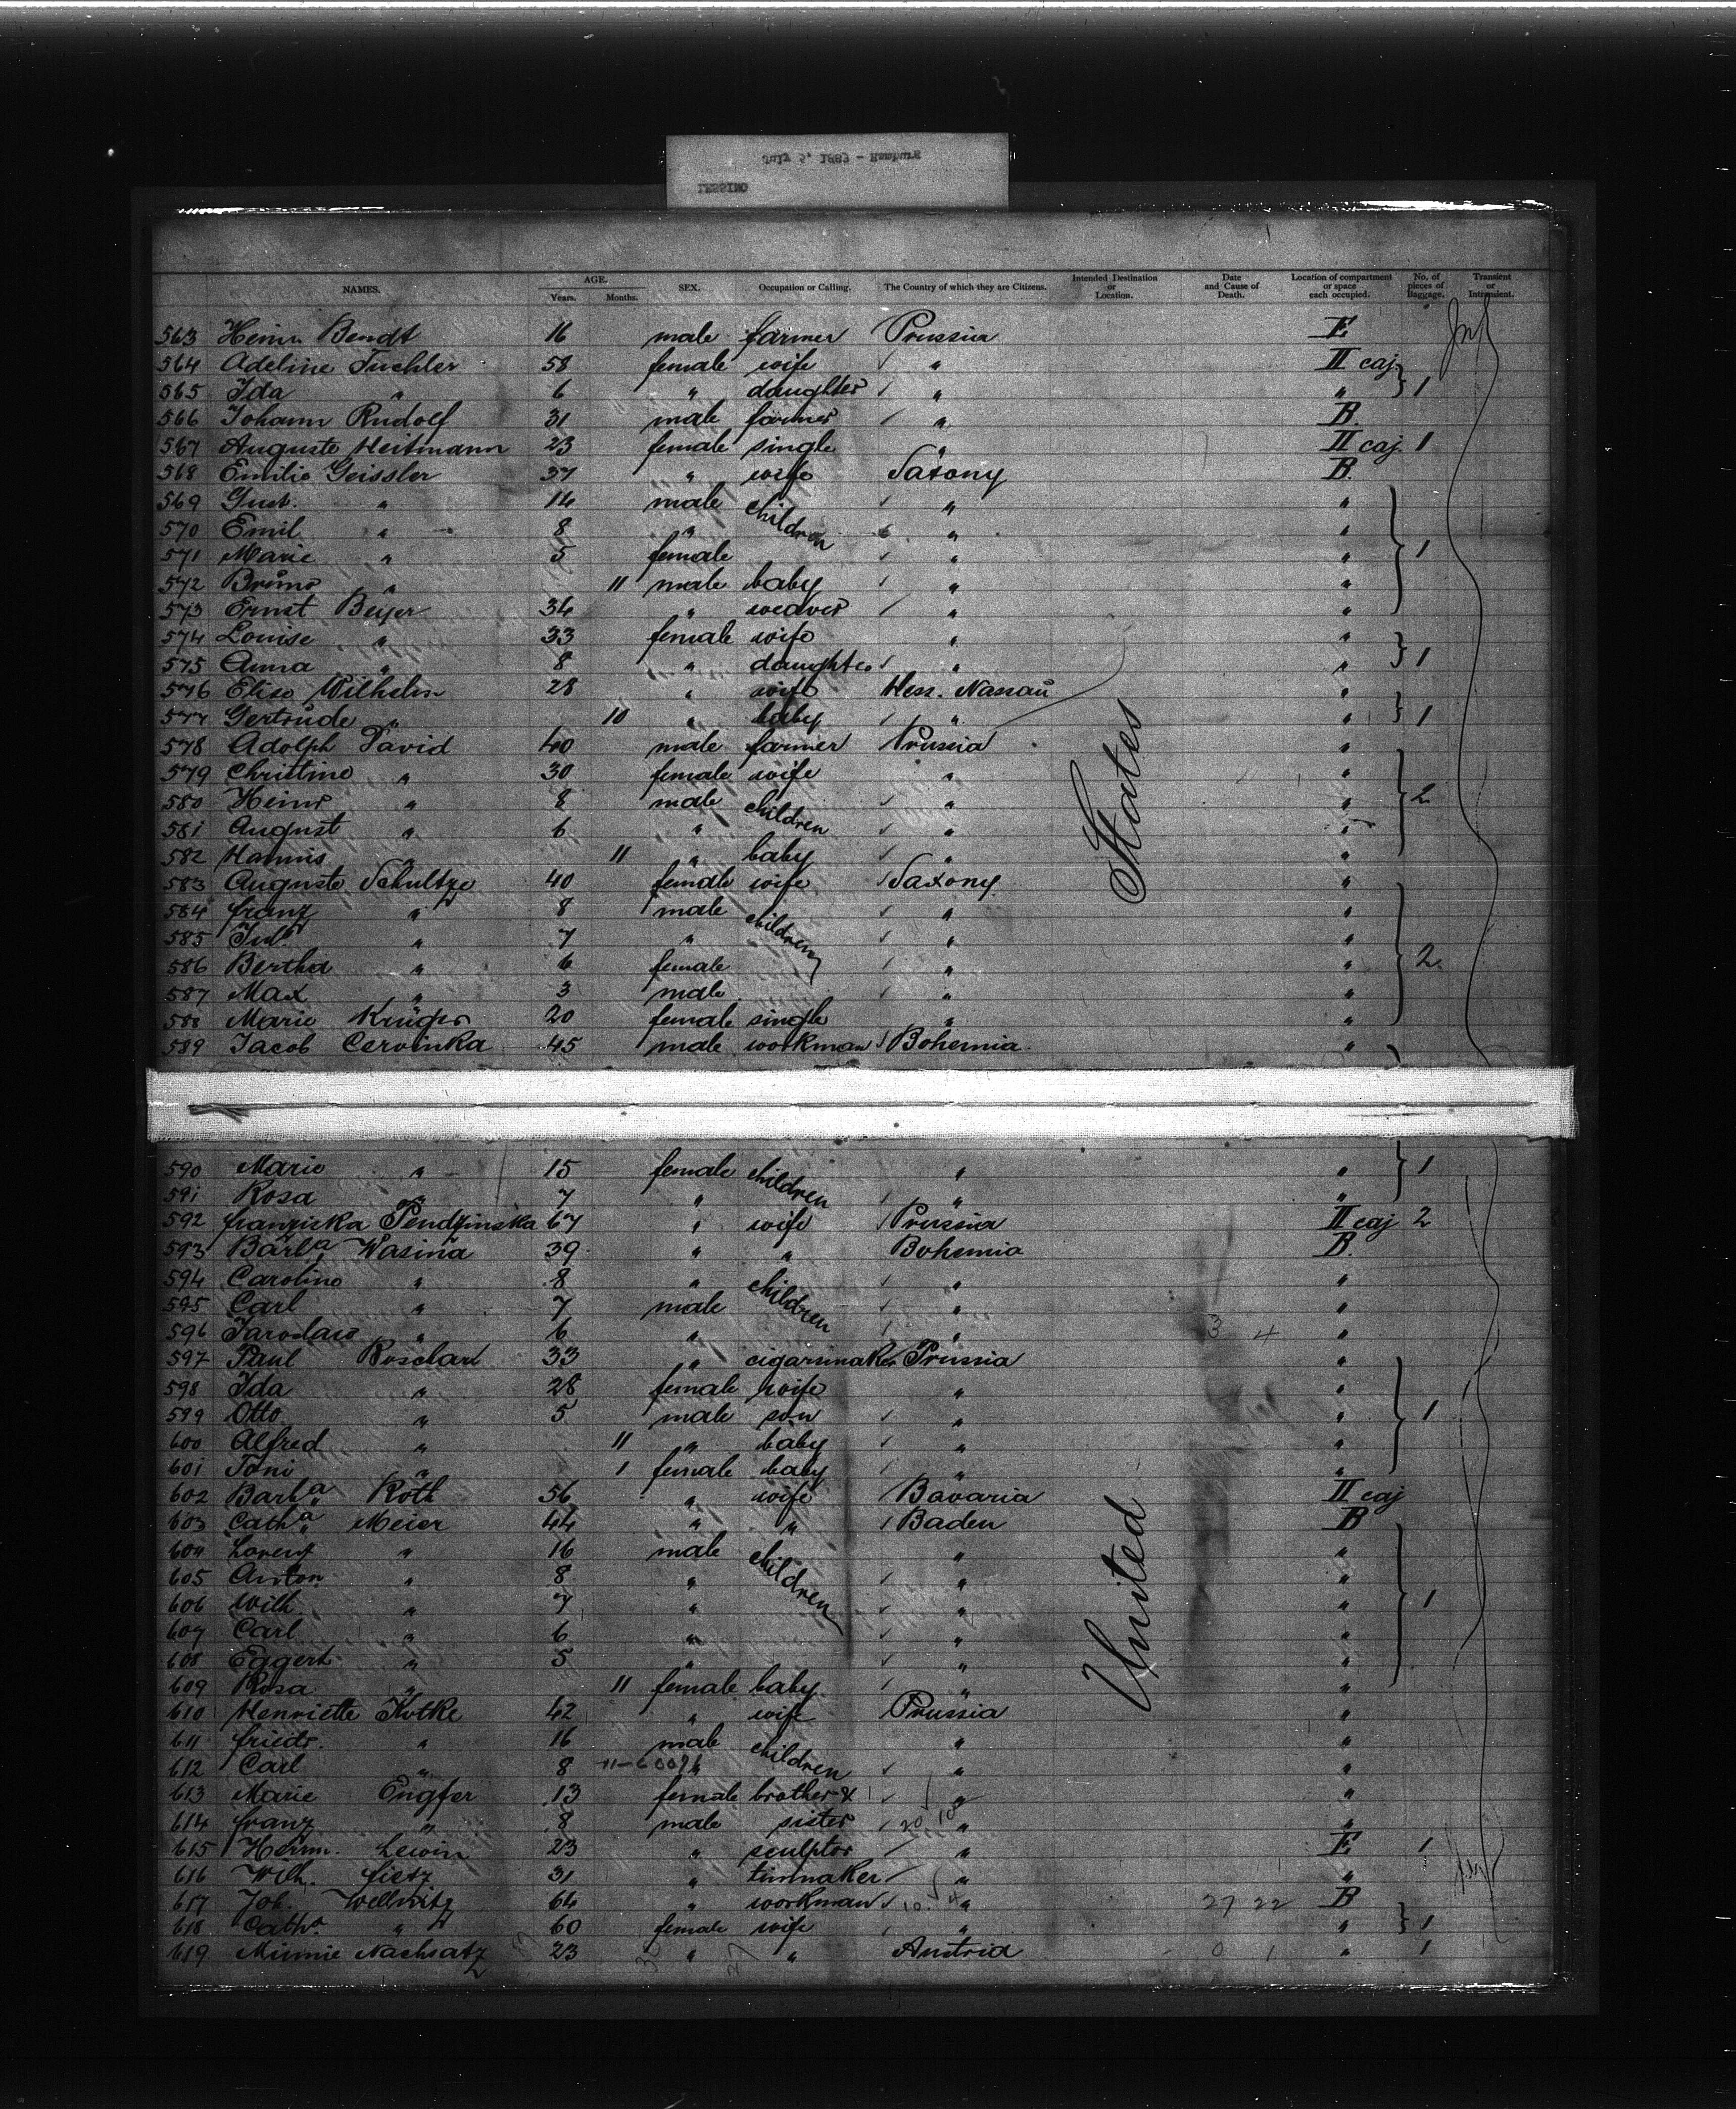 July 5, 1883 - Hamburg
LESSING
NAMES. AGE. Years. Months. SEX. Occupation or Calling. The Country of which they are Citizens. Intended Destination or Location. Date and Cause of Death. Location of compartment or space each occupied. No. of pieces of Baggage. Transient or Intransient.
563 Heinr. Bendt 16 male farmer Prussia E
564 Adeline Tuchler 58 female wife " II caj.
565 Ida " 6 " daughter " " 1
566 Johann Rudolf 31 male farmer " B.
567 Auguste Heitmann 23 female single " II caj. 1
568 Emilie Geissler 37 " wife Saxony B.
569 Gust. " 14 male children " "
570 Emil " 8 " " "
571 Marie " 5 female " " 1
572 Bruno " 11 male baby " "
573 Ernst Beyer 34 " weaver " "
574 Louise " 33 female wife " "
575 Anna " 8 " daughter " " 1
576 Elise Wilhelm 28 " wife Hess. Nassau "
577 Gertrude " 10 " baby " " 1
578 Adolph David 40 male farmer Prussia "
579 Christine " 30 female wife " "
580 Heinr " 8 male children " " 2
581 August " 6 " " "
582 Hannis " 11 " baby " "
583 Auguste Schultze 40 female wife Saxony "
584 franz " 8 male children " "
585 Jul. " 7 " " "
586 Bertha " 6 female " " 2.
587 Max " 3 male " "
588 Marie Krüger 20 female single " "
589 Jacob Cervinka 45 male workman Bohemia "
States
590 Marie " 15 female children " " 1
591 Rosa " 7 " " "
592 franziska Pendzinska 67 " wife Prussia II caj 2
593 Barba Wasina 39 " " Bohemia B.
594 Caroline " 8 " children " "
595 Carl " 7 male " "
596 Jaroslaw " 6 " " 3 4 "
597 Paul 33 " cigarsmaker Prussia "
598 Ida " 28 female wife " "
599 Otto " 5 male son " " 1
600 Alfred " 11 " baby " "
601 Toni " 1 female baby " "
602 Barba Roth 56 " wife Bavaria II caj
603 Catha Meier 44 " " Baden B
604 Lorenz " 16 male children " "
605 Anton " 8 " " "
606 Wilh. " 7 " " " 1
607 Carl " 6 " " "
608 Eggert " 5 " " "
609 Rosa " 11 female baby " "
610 Henriette Kotke 42 " wife Prussia "
611 friedr. " 16 male children " "
612 Carl " 8 " " "
613 Marie Engfer 13 female brother & " "
614 franz " 8 male sister " "
615 Herm. Lewin 23 " sculptor " E 1
616 Wilh. fietz 31 " tinmaker " "
617 Joh. Wellnitz 64 " workman " 27 22 B
618 Catha " 60 female wife " " 1
619 Minnie Nachsatz 23 " " Austria 0 1 " 1
United